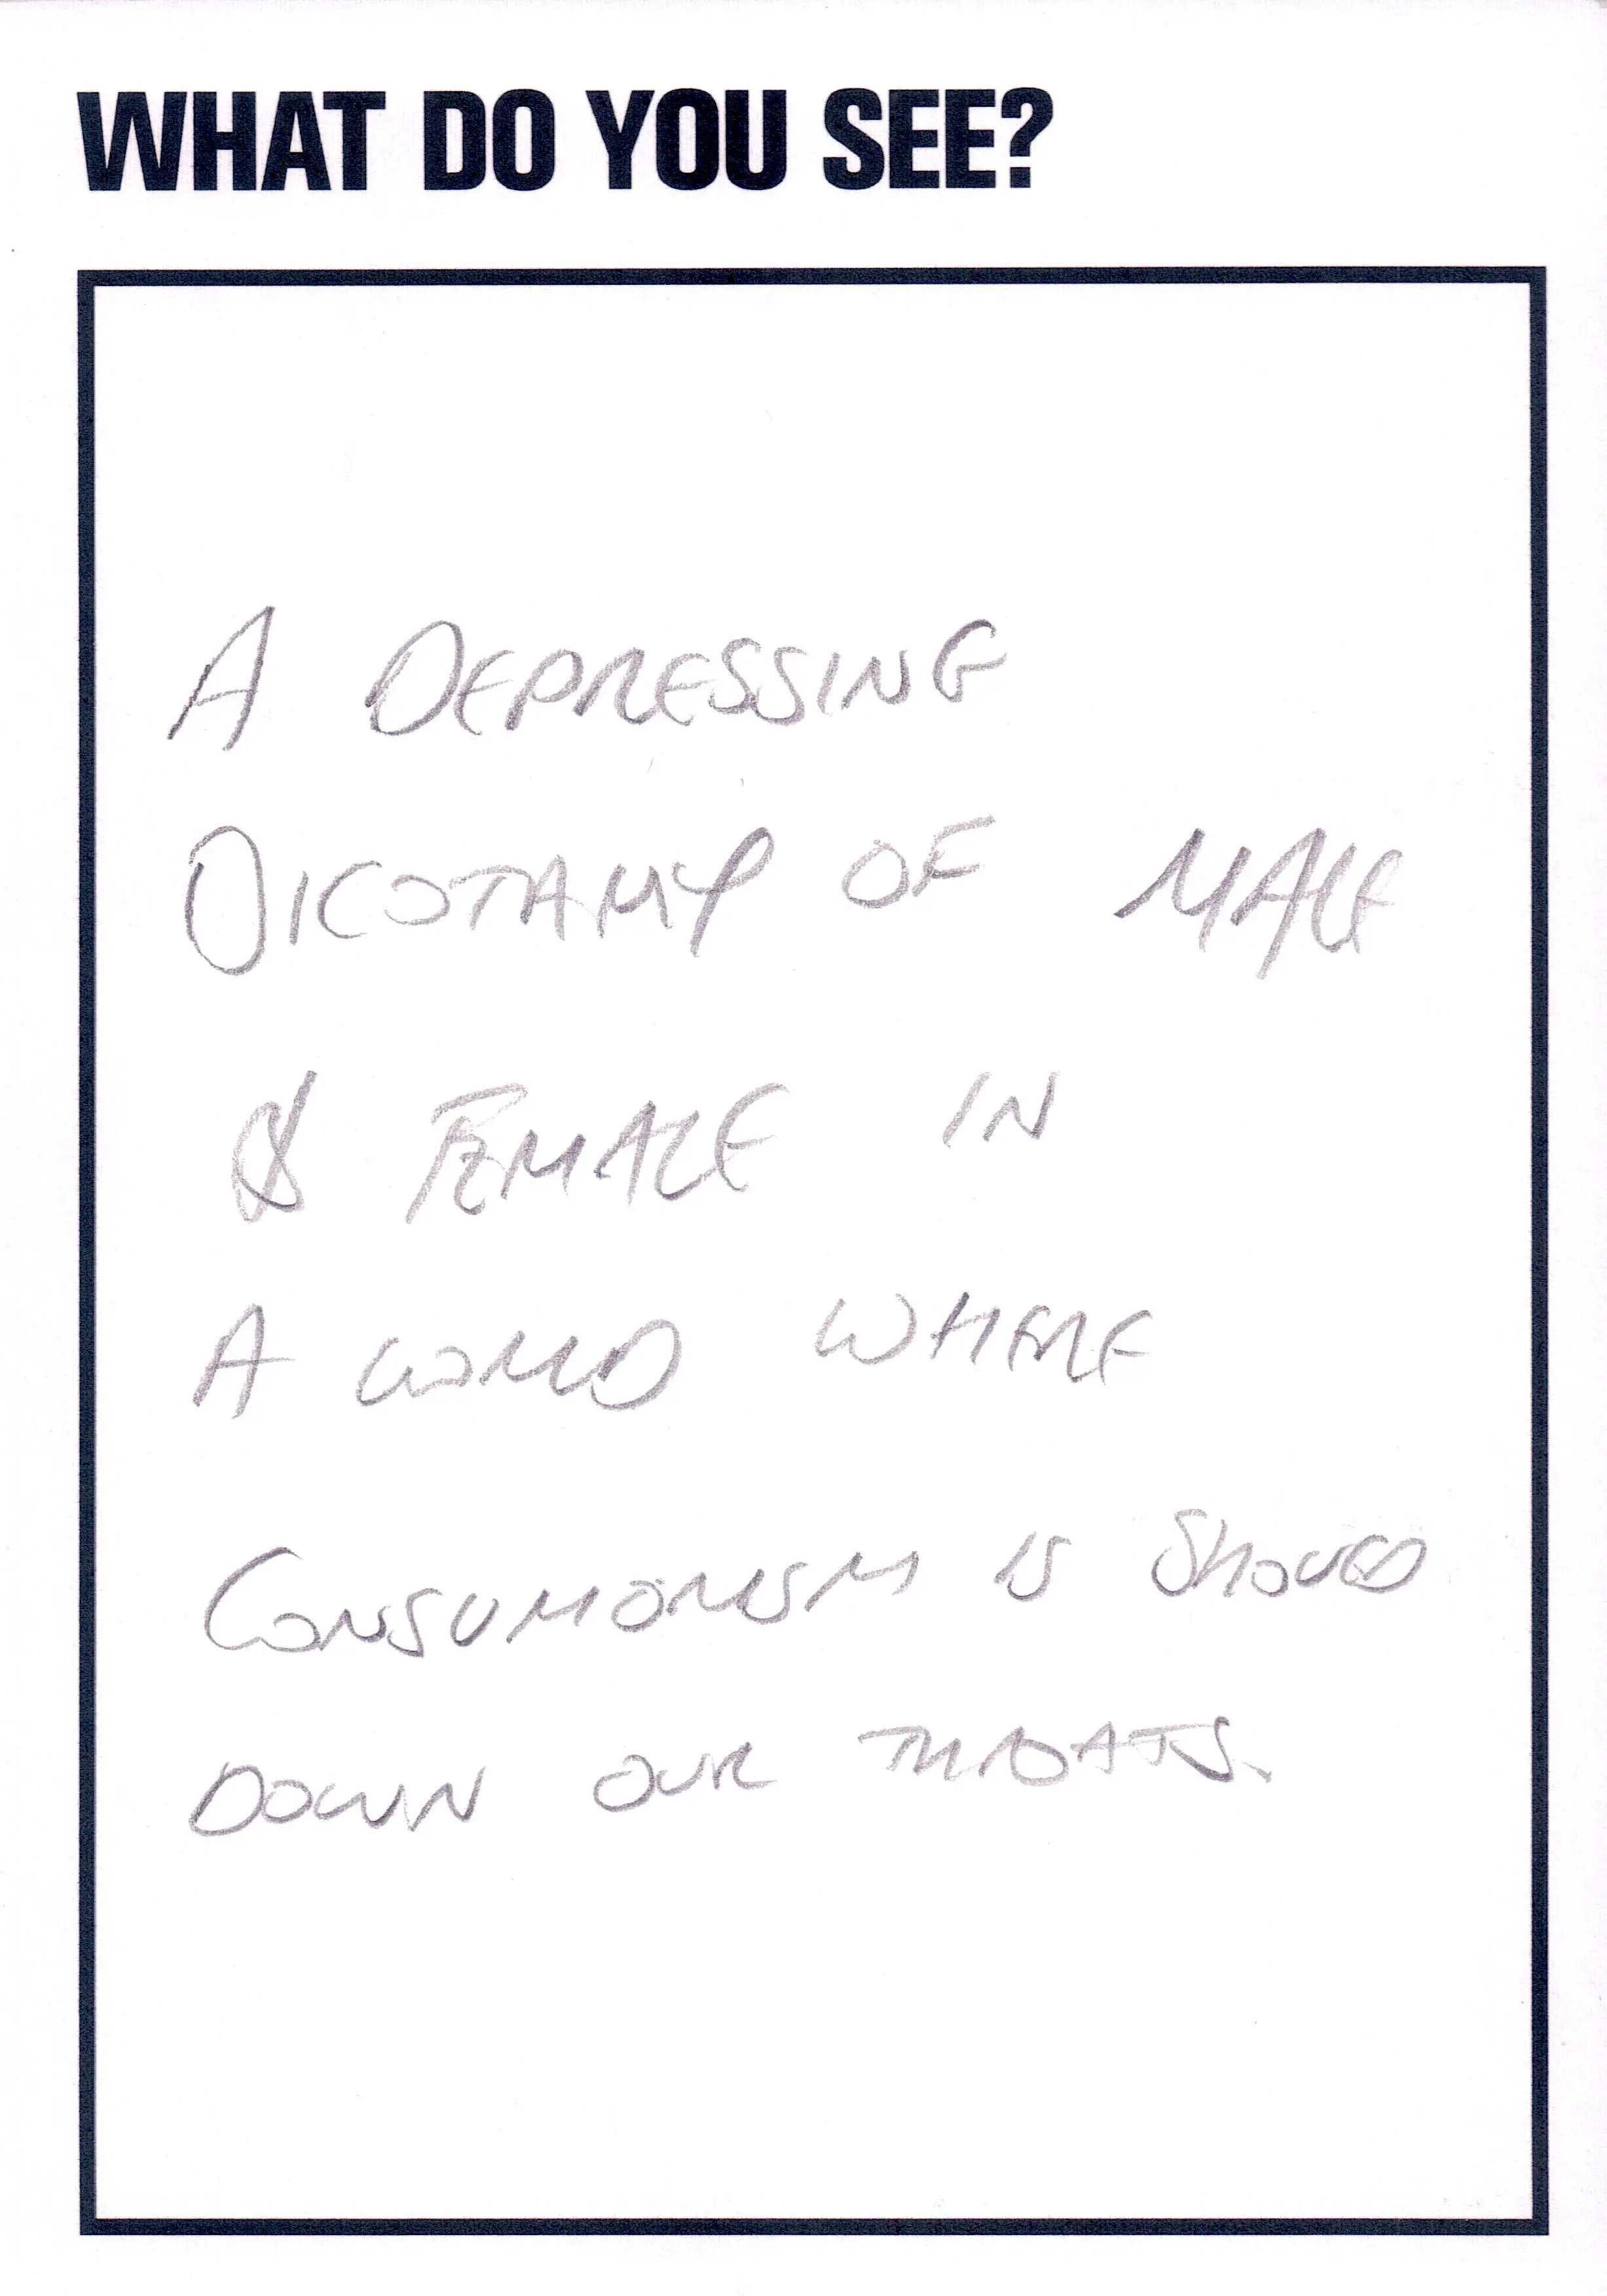 WHAT DO YOU SEE?
A DEPRESSING
DICOTAMY OF MALE
& FEMALE IN
A WORLD WHERE
CONSUMORISM IS SHOVED
DOWN OUR THROATS.